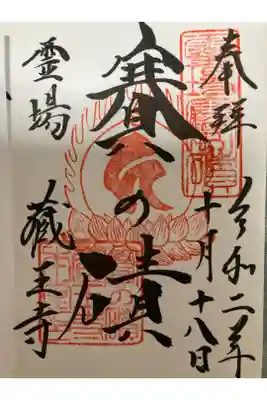 奉拝
令和二年
十月十八日
賽の磧
霊場
蔵王寺